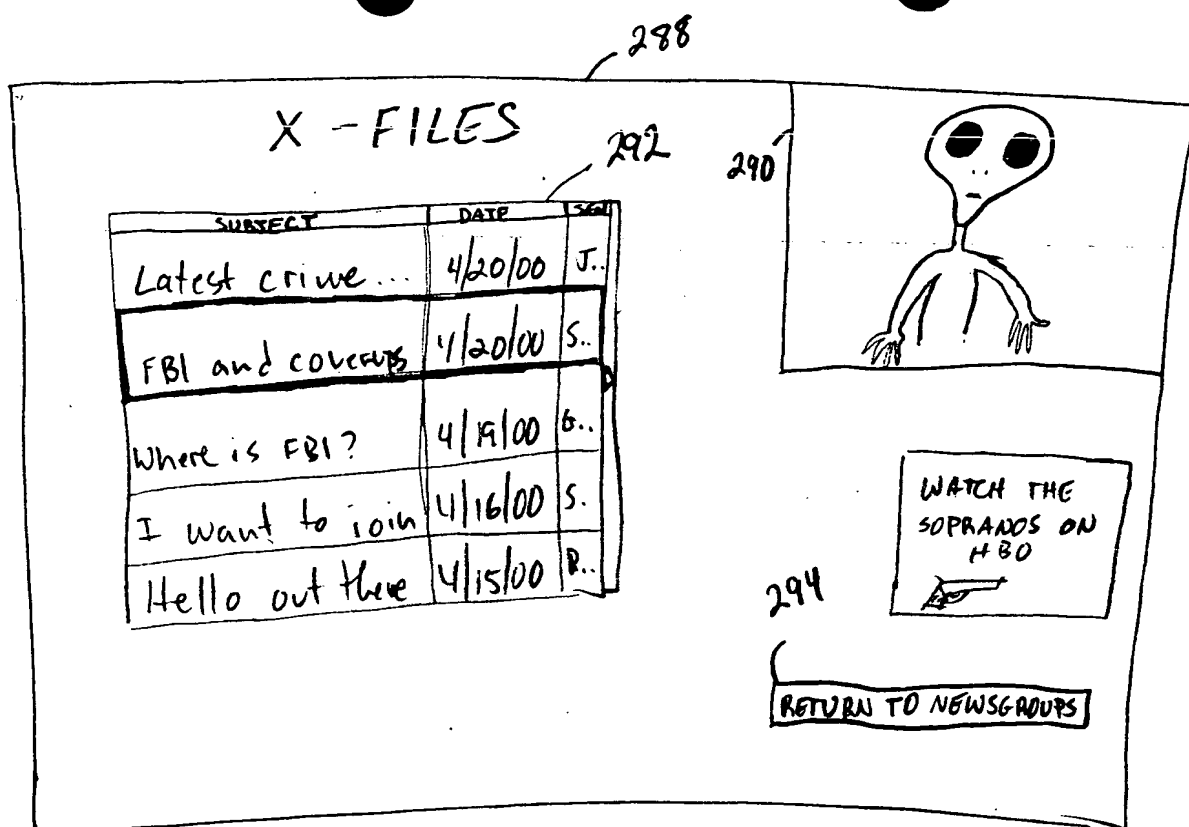 288
X-FILES
292
290
SUBJECT DATE
Latest crime... 4/20/00 J..
FBI and coverups 4/20/00 S..
Where is FBI? 4/19/00 G..
I want to join 4/16/00 S.
Hello out there 4/15/00 B..
WATCH THE
SOPRANOS ON
HBO
294
RETURN TO NEWSGROUPS